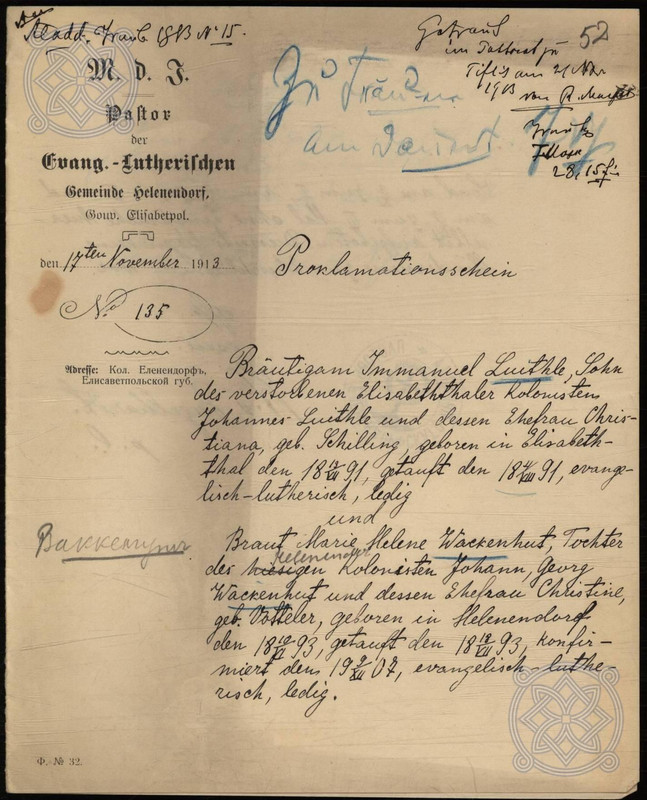 Traub 1913 № 15.
M. d. J.
Pastor
der
Evang.-Lutherischen
Gemeinde Helenendorf,
Gouv. Elisabetpol.
den 17ten November 1913
№ 135
Adresse: Кол. Еленендорфъ,
Елисаветпольской губ.
52
Getraut
im Pastorat zu
Tiflis am 21 Nov
1913
von R. Mayer
28,15
Zu Trauen
am
Proklamationsschein
Bräutigam Immanuel Luithle, Sohn
des verstorbenen Elisabeththaler Kolonisten
Johannes Luithle und dessen Ehefrau Chris-
tiana, geb. Schilling, geboren in Elisabeth-
thal den 18 VII 91, getauft den 18 VIII 91, evange-
lisch-lutherisch, ledig
und
Braut Marie Helene Wackenhut, Tochter
Helenendorfer
des hiesigen Kolonisten Johann, Georg
Wackenhut und dessen Ehefrau Christine,
geb. Votteler, geboren in Helenendorf
den 18 93, getauft den 18 93, konfir-
miert den 19 07, evangelisch-luthe-
risch, ledig.
Ваккенгут
Ф. № 32.